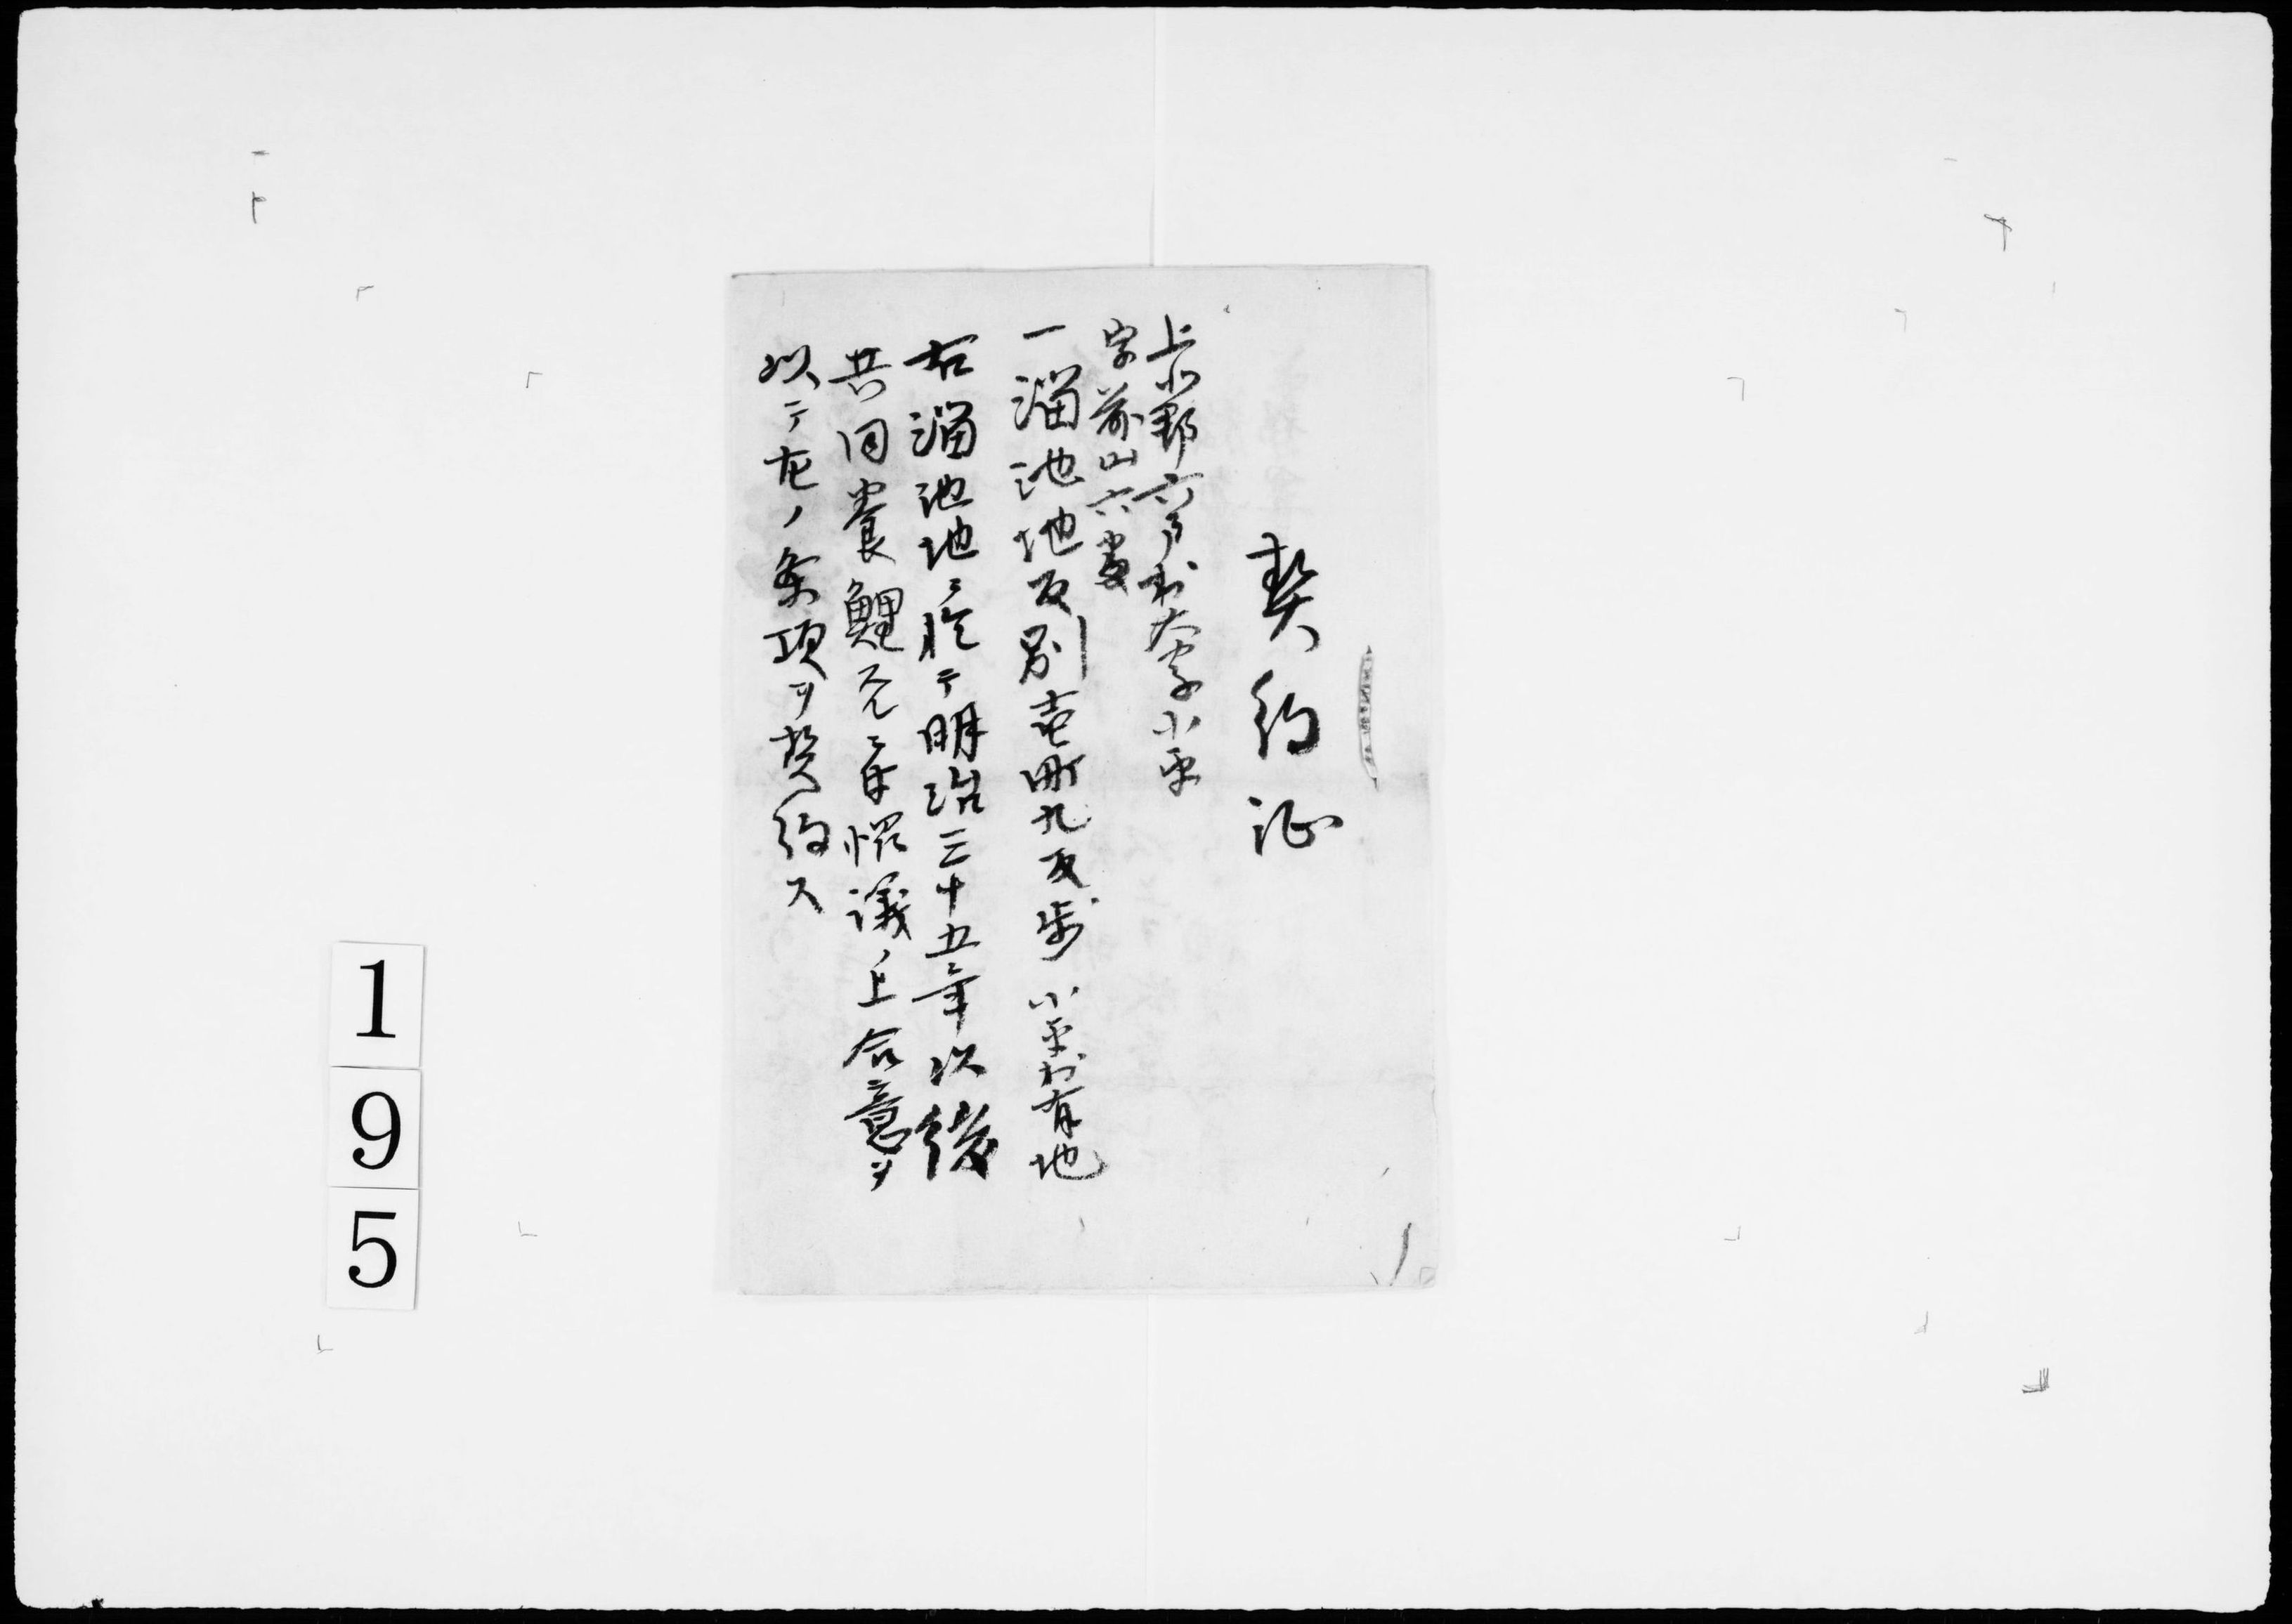 契約証
上北郡六戸村大字小平
字前山六番
一溜池地反別壱町九反歩 小平村有地
右溜池地ニ於テ明治三十五年以後
共同養鯉スルニ付協議ノ上合意ヲ
以テ左ノ条項ヲ契約ス
195